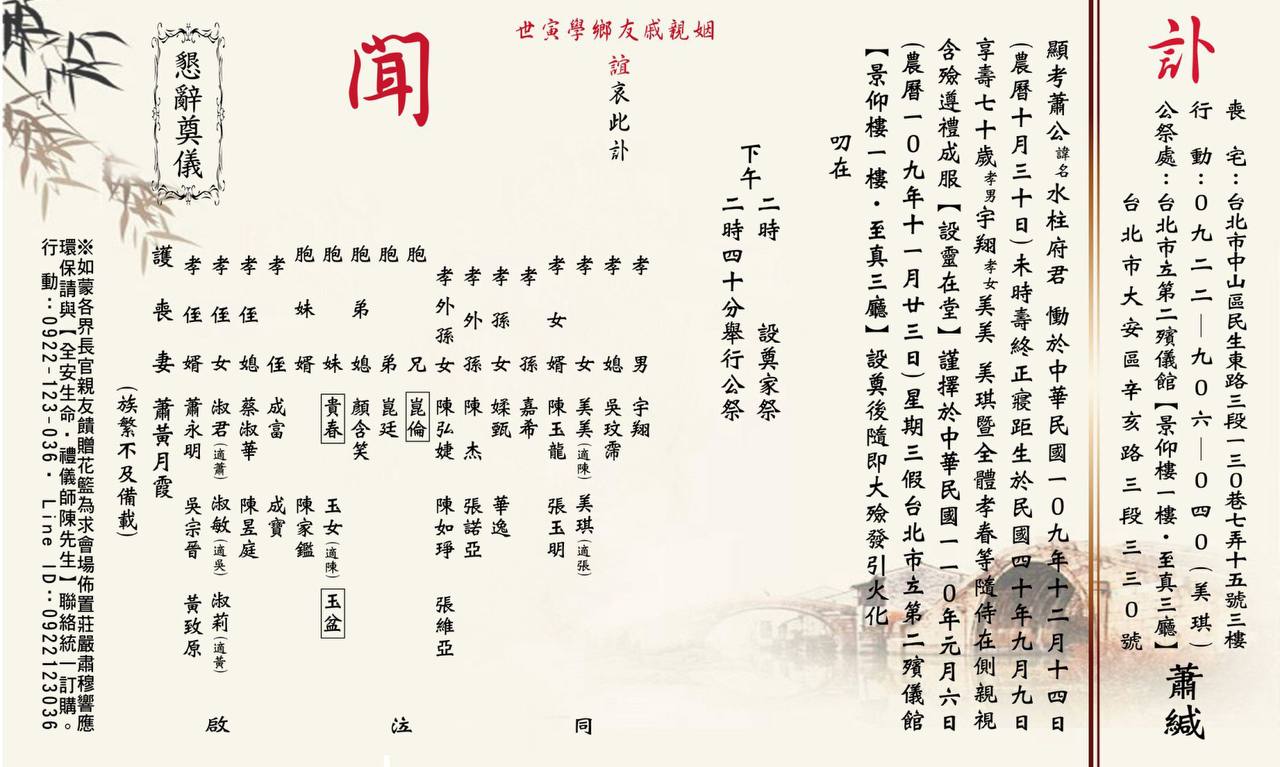 訃
喪宅：台北市中山區民生東路三段一三0巷七弄十五號三樓
行動：0九二二—九0六—0四0(美琪)
公祭處：台北市立第二殯儀館【景仰樓一樓・至真三廳】
台北市大安區辛亥路三段三三0號
蕭緘
顯考蕭公諱名水柱府君 慟於中華民國一0九年十二月十四日
(農曆十月三十日)未時壽終正寢距生於民國四十年九月九日
享壽七十歲孝男宇翔孝女美美 美琪暨全體孝眷等隨侍在側親視
含殮遵禮成服【設靈在堂】謹擇於中華民國一一0年元月六日
(農曆一0九年十一月廿三日)星期三假台北市立第二殯儀館
【景仰樓一樓・至真三廳】設奠後隨即大殮發引火化
叨在
下午 二時 設奠家祭
二時四十分舉行公祭
世寅學鄉友戚親姻
誼哀此訃
聞
孝男 宇翔
孝媳 吳玟霈
孝女 美美(適陳) 美琪(適張)
孝女婿 陳玉龍 張玉明
孝孫 嘉希 華逸
孝孫女 媃甄
孝外孫 陳杰 張諾亞
孝外孫女 陳弘婕 陳如琤 張維亞
胞兄 崑倫
胞弟 崑廷
胞弟媳 顏含笑
胞妹 貴春 玉女(適陳) 玉盆
胞妹婿 陳家鑑
孝侄 成富 成寶
孝侄媳 蔡淑華 陳昱庭
孝侄女 淑君(適蕭) 淑敏(適吳) 淑莉(適黃)
孝侄婿 蕭永明 吳宗晉 黃致原
護喪妻 蕭黃月霞
同泣啟
(族繁不及備載)
懇辭奠儀
※如蒙各界長官親友饋贈花籃為求會場佈置莊嚴肅穆響應
環保請與【全安生命・禮儀師陳先生】聯絡統一訂購。
行動：0922-123-036・ Line ID：0922123036